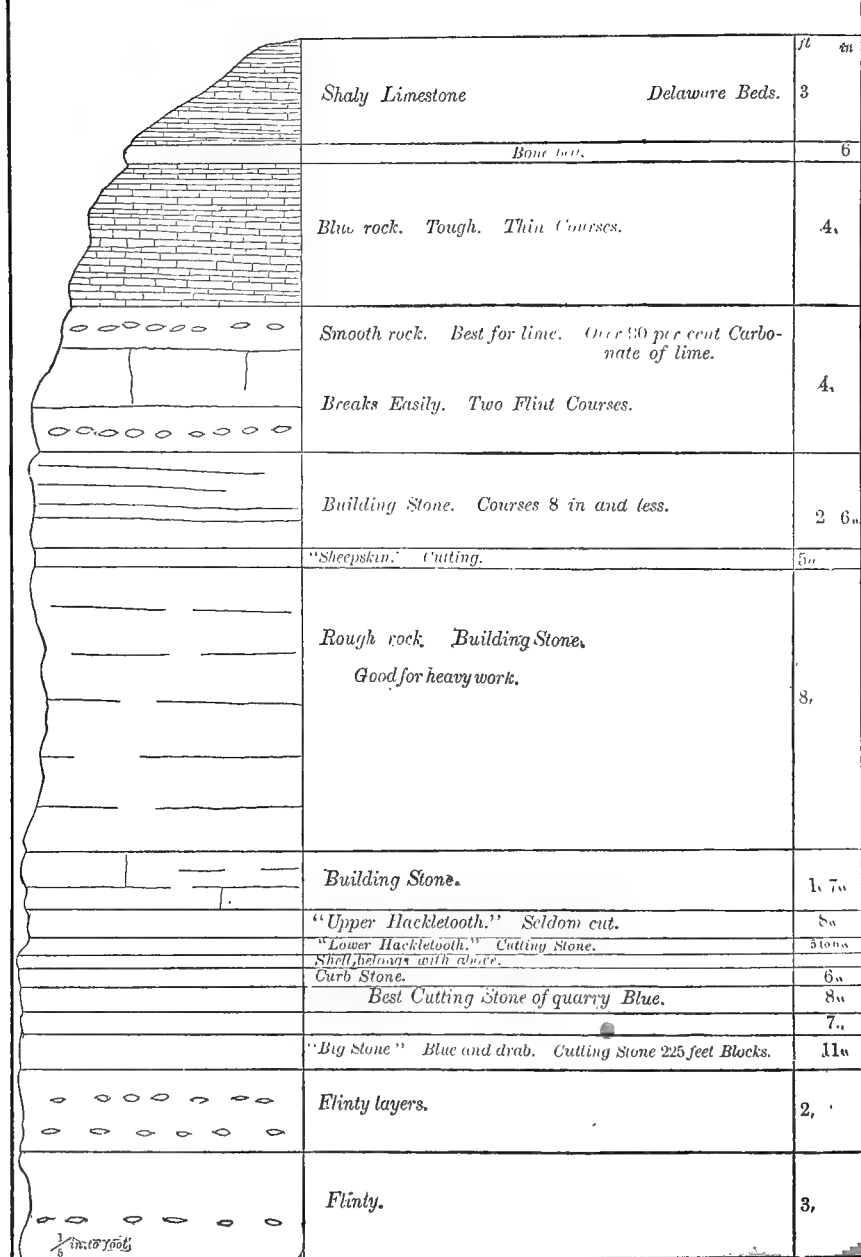 ft in
Shaly Limestone Delaware Beds. 3
Bone bed. 6
Blue rock. Tough. Thin Courses. 4,
Smooth rock. Best for lime. Over 90 per cent Carbo-
nate of lime.
4,
Breaks Easily. Two Flint Courses.
Building Stone. Courses 8 in and less. 2 6"
"Sheepskin." Cutting. 5"
Rough rock. Building Stone.
Good for heavy work.
8,
Building Stone. 1, 7"
"Upper Hackletooth." Seldom cut. 8"
"Lower Hackletooth." Cutting Stone.
Shell, belongs with above.
Curb Stone. 6"
Best Cutting Stone of quarry Blue. 8"
7"
"Big Stone" Blue and drab. Cutting Stone 225 feet Blocks. 11"
Flinty layers. 2,
Flinty. 3,
in. to foot